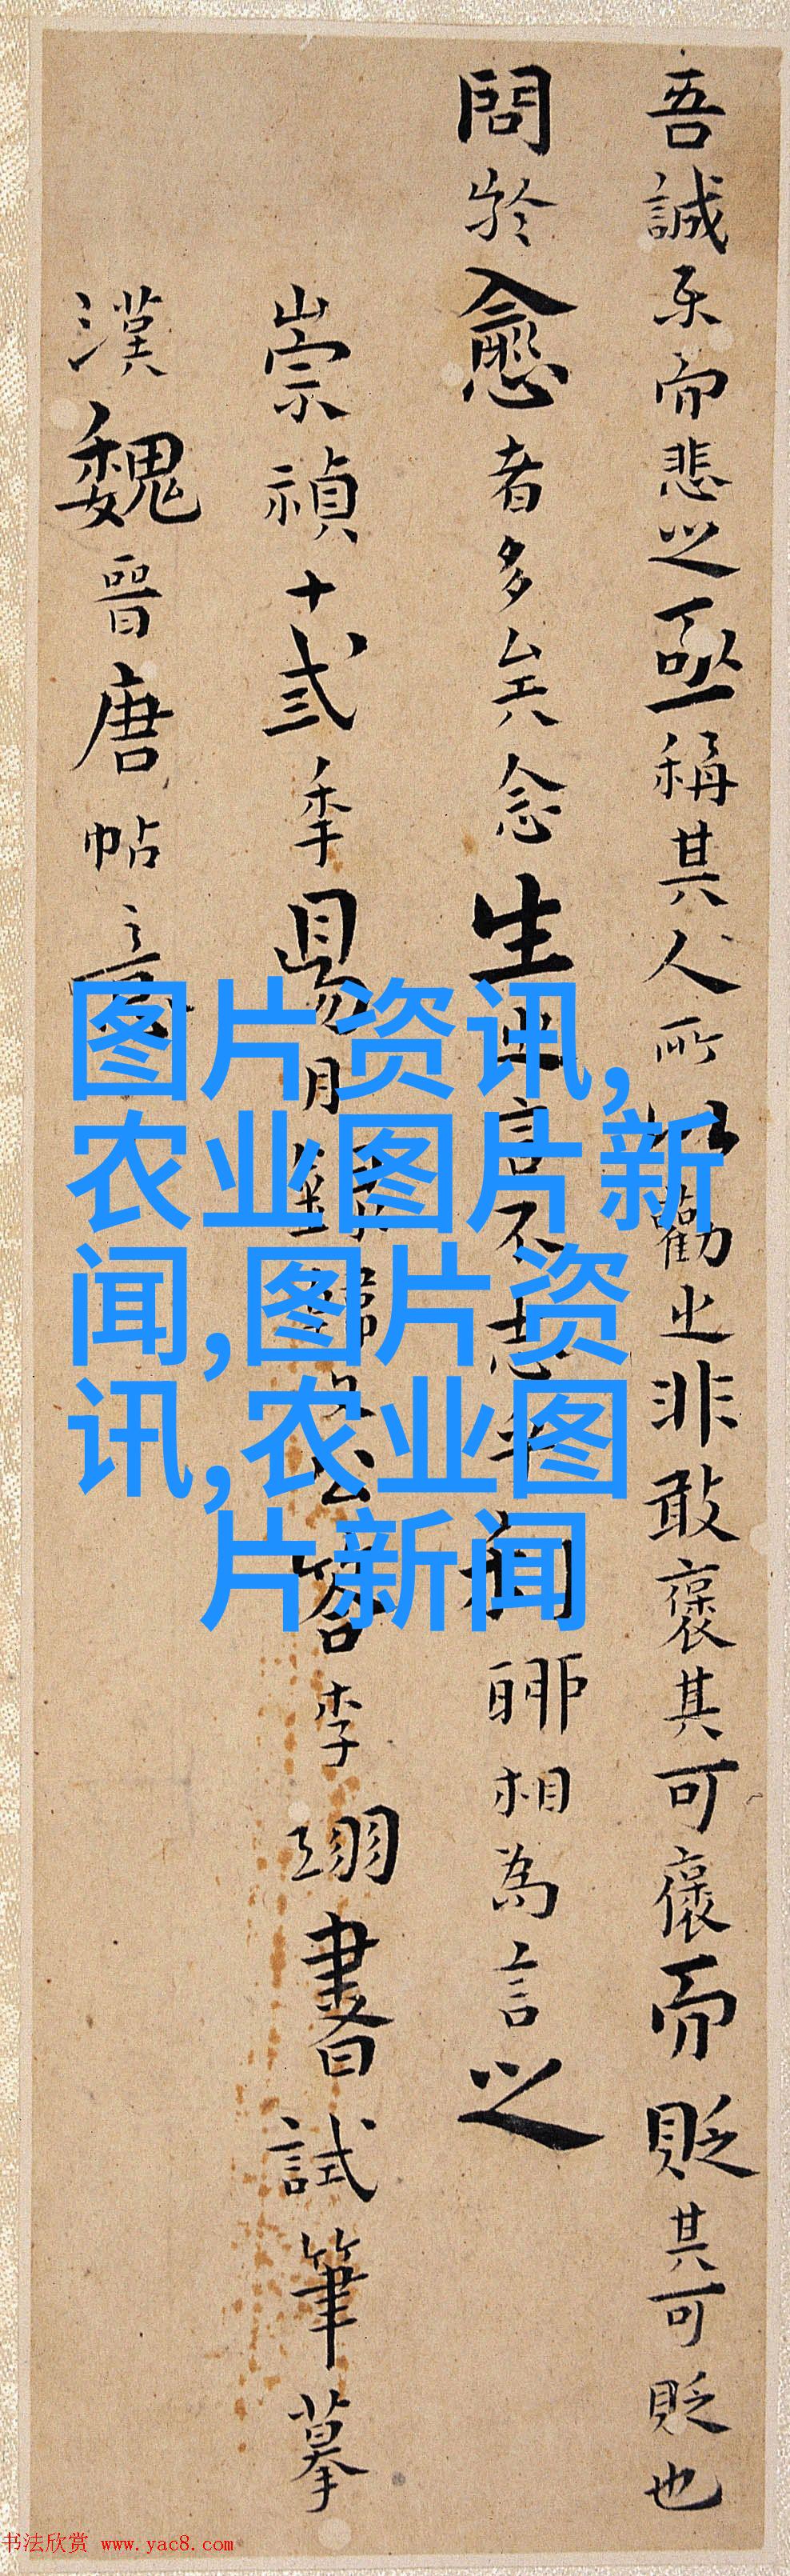 吾誠樂而悲之亟稱其人所以勸之非敢褒其可褒而貶其可貶也
問於愈者多矣念生之言不志乎利聊相為言之
崇禎十弍年昜月錄韓文公答李翊書試筆摹
漢魏晉唐帖意
图片资讯,
农业图片新
闻,图片资
讯,农业图
片新闻
书法欣赏 www.yac8.com